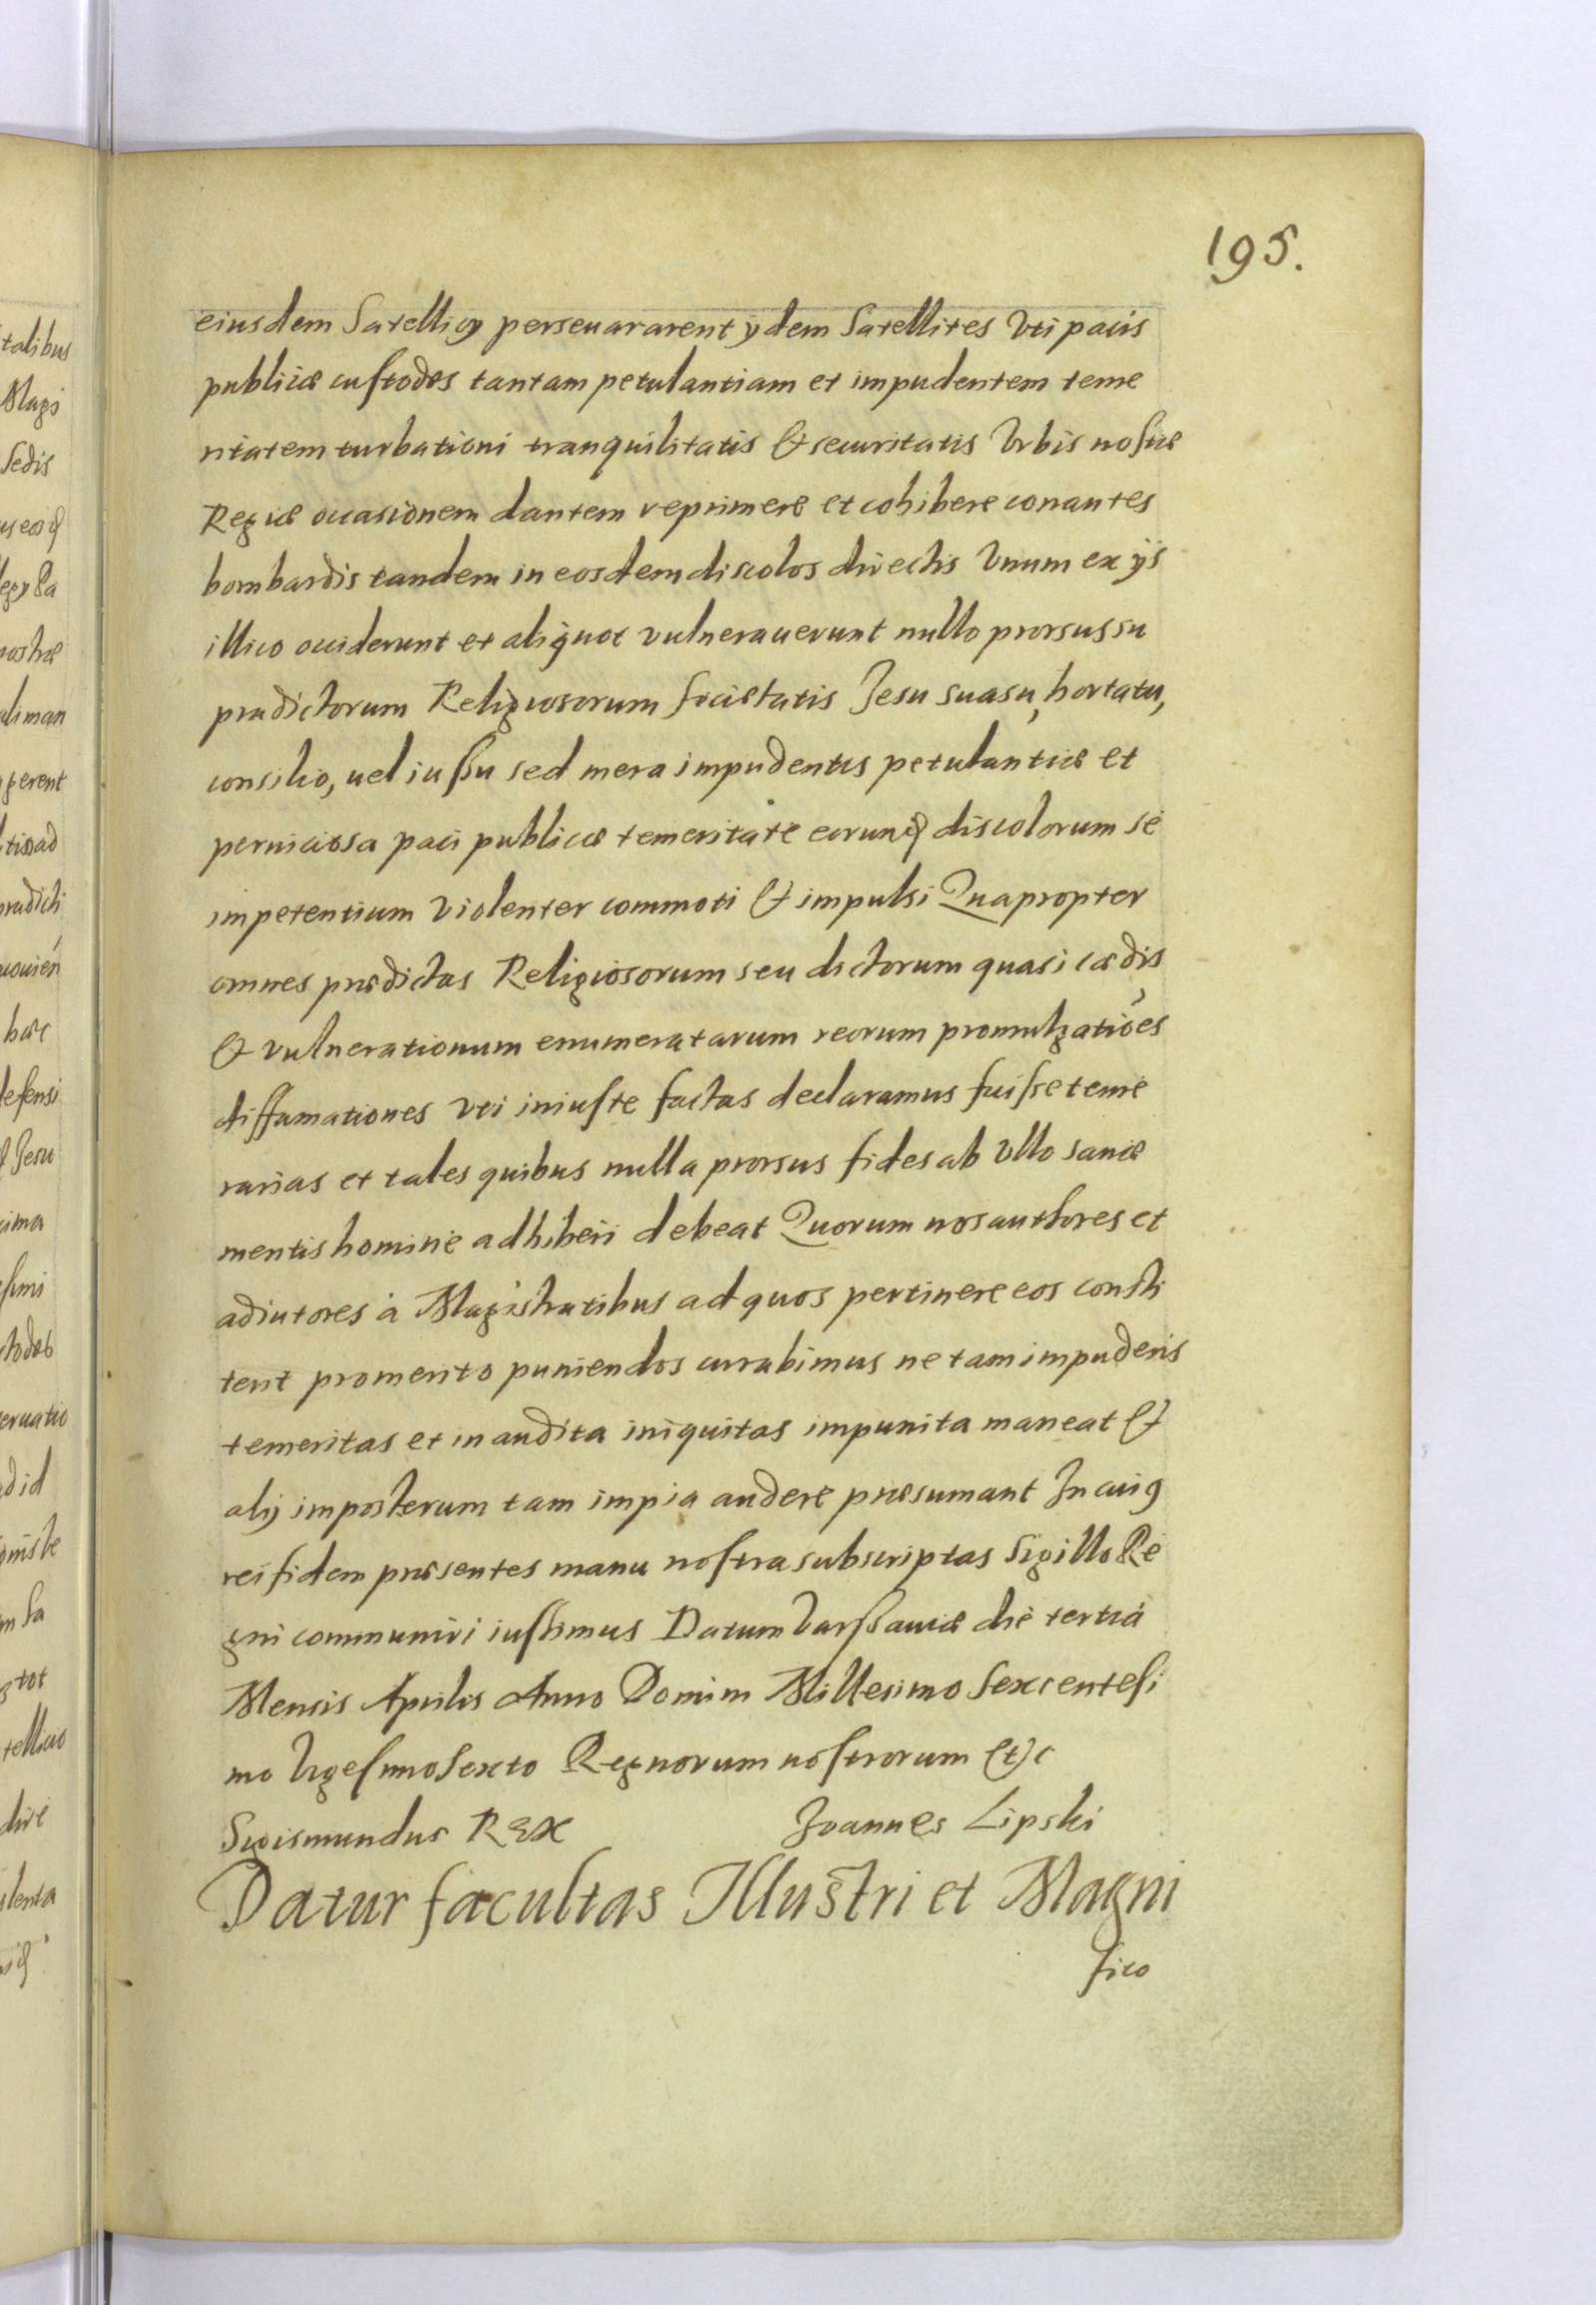 195.
eiusdem Satellicij perseuararent ydem Satellites Vti pacis
publicæ custodes tantam petulantiam et impudentem teme
ritatem turbationi tranquilitatis & securitatis Vrbis nostræ
Regiæ occasionem dantem reprimere et cohibere conantes
bombardis tandem in eosdem discolos directis Vnum ex ijs
illico occiderunt et aliquot vulnerauerunt nullo prorsus su
prædictorum Religiosorum Societatis Jesu suasu, hortatu,
consilio, uel iussu sed mera impudentis petulantiæ et
perniciosa paci publicæ temeritate eorunq discolorum se
impetentium Violenter commoti & impulsi Quapropter
omnes prædictas Religiosorum seu dictorum quasi cædis
& vulnerationum enumeratarum reorum promulgatiões,
diffamationes Vti iniuste factas declaramus fuisse teme
rarias et tales quibus nulla prorsus fides ab Vllo sanæ
mentis homine adhiberi debeat Quorum nos authores et
adiutores à Magistratibus ad quos pertinere eos consti
terit promerito puniendos curabimus ne tam impudens
temeritas et inaudita iniquitas impunita maneat &
alij imposterum tam impia audere præsumant In cuig
rei fidem præsentes manu nostra subscriptas Sigillo Re
gni communiri iussimus Datum Varssauiæ die tertiâ
Mensis Aprilis Anno Domini Millesimo Sexcentesi
mo Vigesimo Sexto Regnorum nostrorum (et)c
Sigismundus REX Joannes Lipski
Datur facultas Illustri et Magni
fico
talibus
Magi
Sedis
nostræ
aliman
gerent
prædicti
hæc
defensi
Jesu
eruatio
did
tot
dire
ulenta